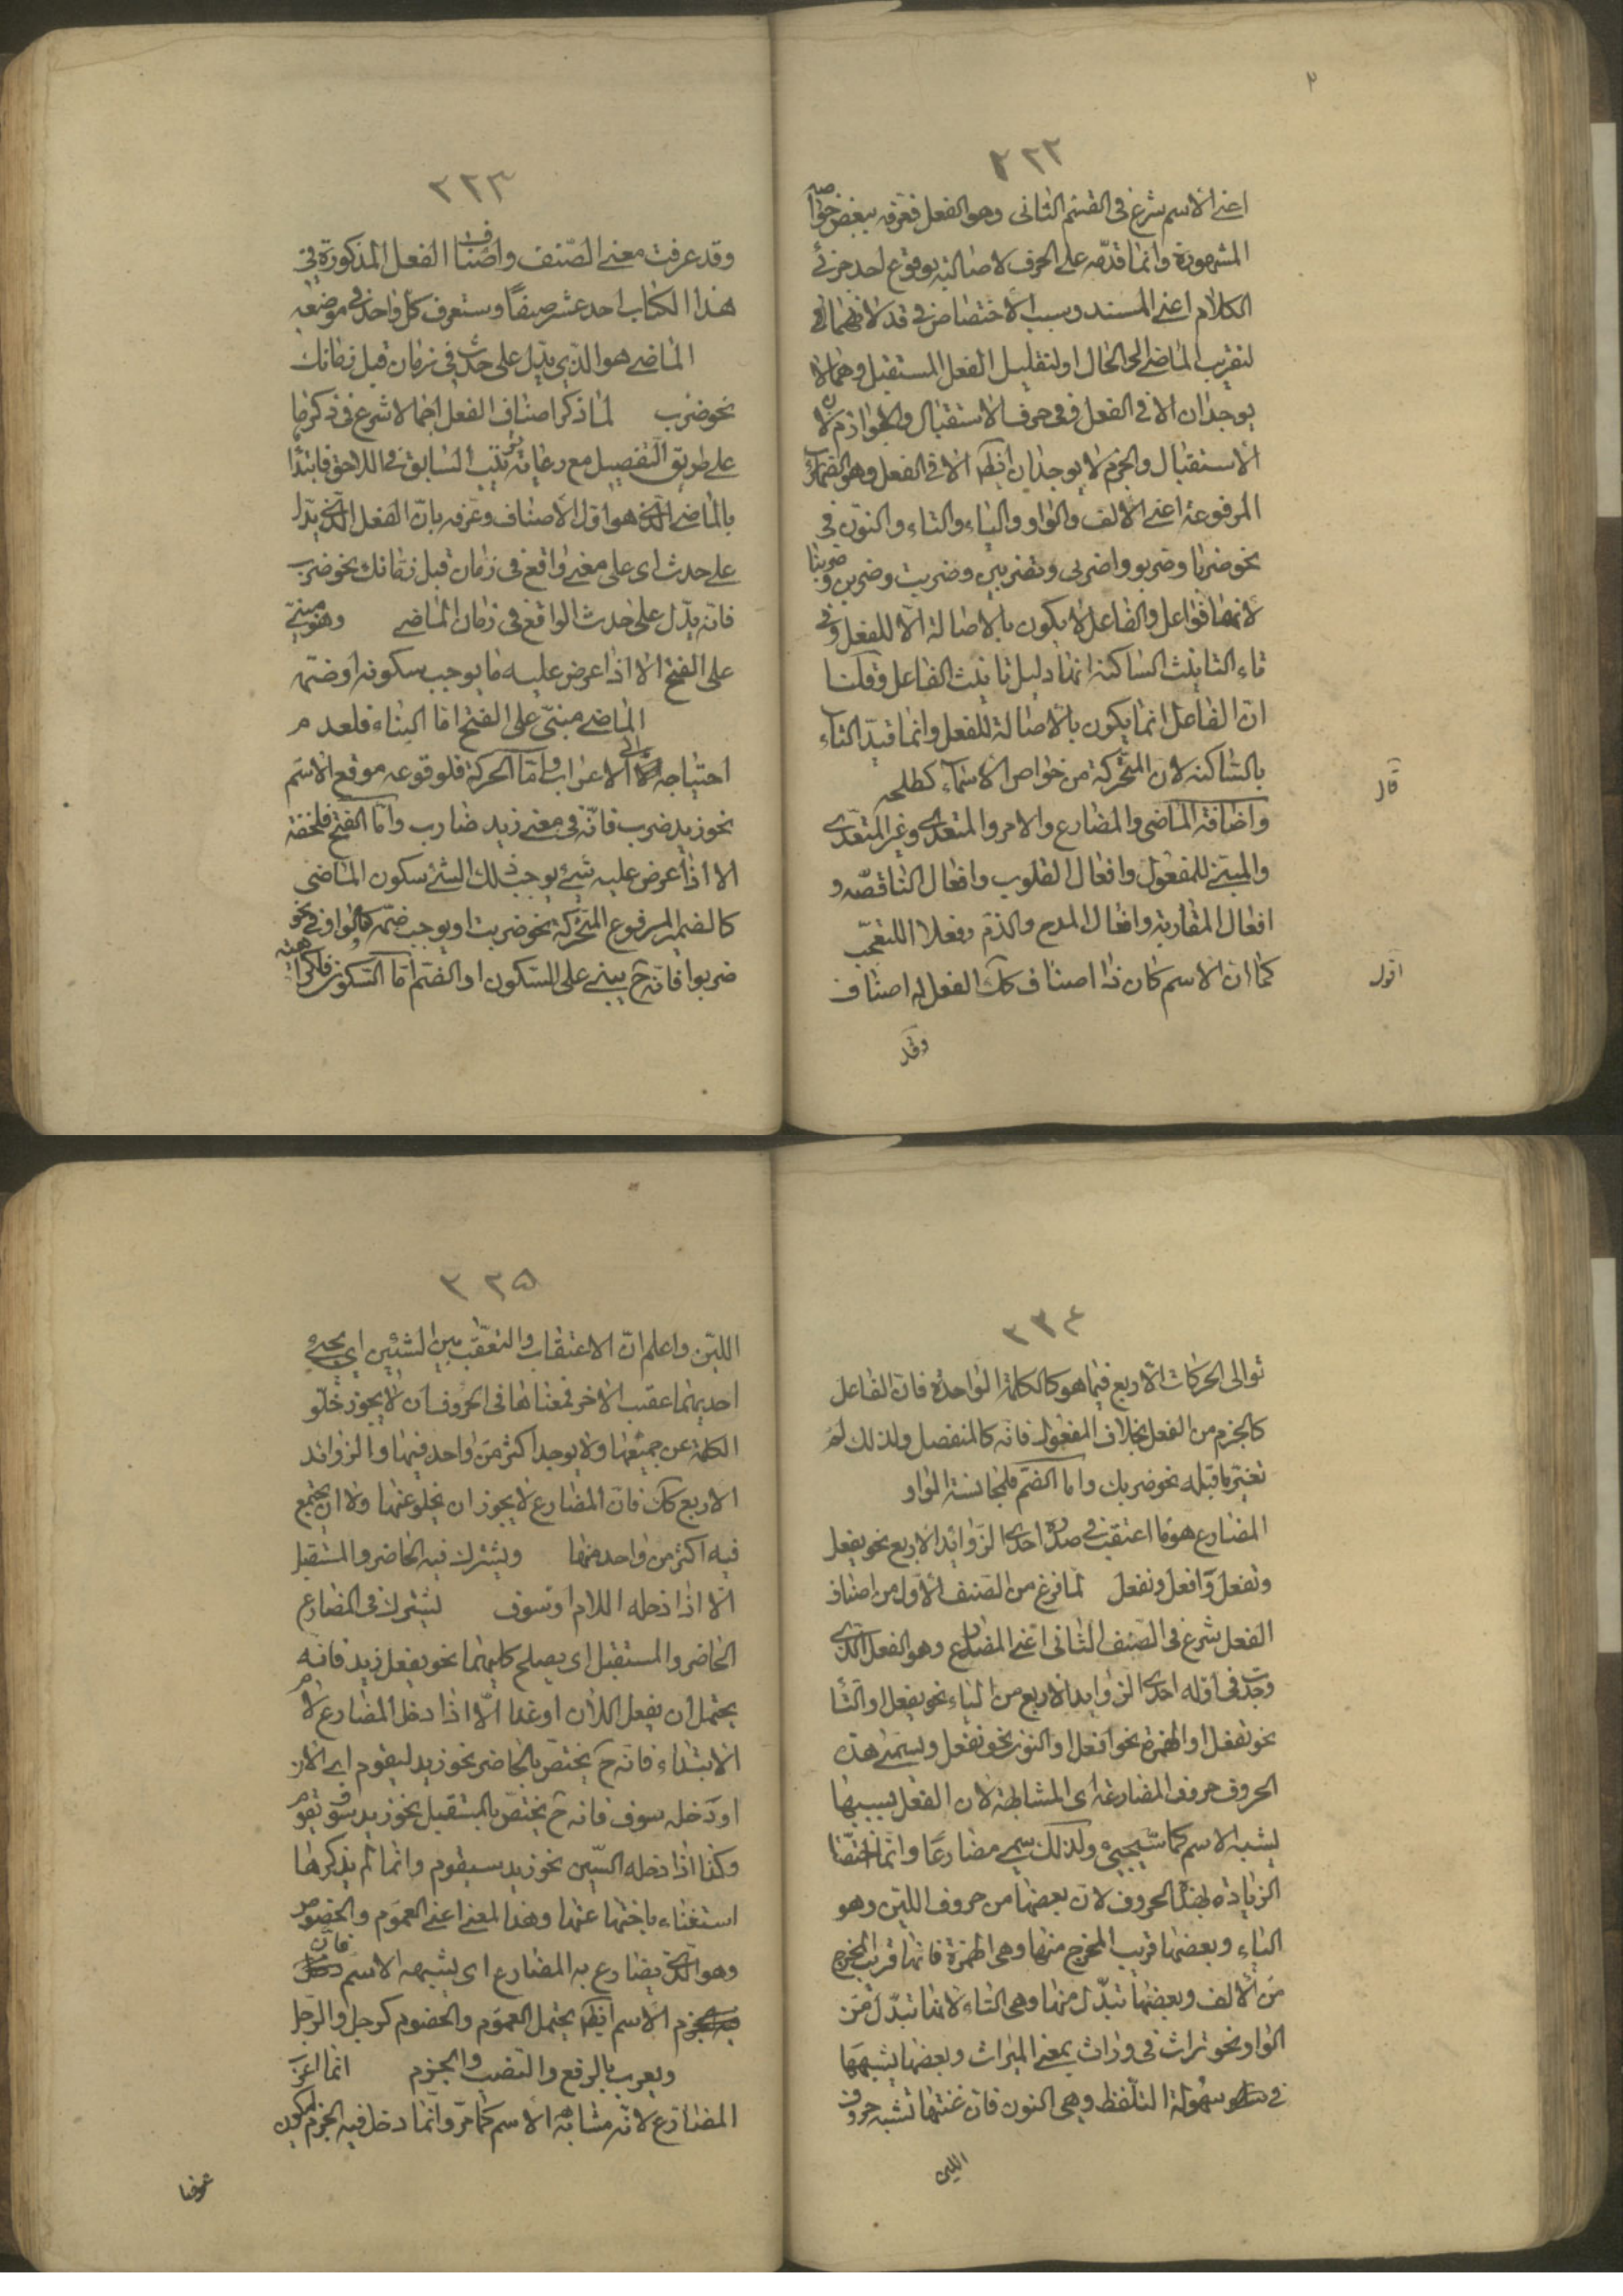 ٢
٢٢٢
اعنى الاسم شرع فى القسم الثانى وهو الفعل فعرفه ببعض خواصه
المشهورة وانما قدّمه على الحرف لاصالته بوقوع احد جزئى
الكلام اعنى المسند وسبب الاختصاص فى قد لانهما
لتقريب الماضى الى الحال او لتقليل الفعل المستقبل وهما لا
يوجدان الا فى الفعل وفى حرف الاستقبال والجوازم لان
الاستقبال والجزم لا يوجدان ايضا الا فى الفعل وهو الضمائر
المرفوعة اعنى الالف والواو والياء والتاء والنون فى
نحو ضربا وضربوا واضربى وتضربين وضربت وضربن وضربنا
لانها فواعل والفاعل لا يكون بالاصالة الا للفعل وفى
تاء التانيث الساكنة انها دليل تانيث الفاعل وقلنا
ان الفاعل انما يكون بالاصالة للفعل وانما قيد التاء
بالساكنة لان المتحركة من خواص الاسماء كطلحه
قال
واصنافه الماضى والمضارع والامر والمتعدى وغير المتعدى
والمبنى للمفعول وافعال القلوب وافعال الناقصه و
افعال المقاربة وافعال المدح والذم وفعلا التعجب
اقول
كما ان الاسم كان ذا اصناف كك الفعل له اصناف
وقد
٢٢٣
وقد عرفت معنى الصنف واصناف الفعل المذكورة فى
هذا الكتاب احد عشر صنفًا وستعرف كل واحد فى موضعه
الماضى هو الذى يدل على حدث فى زمان قبل زمانك
نحو ضرب لما ذكر اصناف الفعل اجمالا شرع فى ذكرها
على طريق التفصيل مع رعاية ترتيب السابق فى اللاحق فابتدا
بالماضى الذى هو اول الاصناف وعرفه بانّ الفعل الذى يدل
على حدث اى على معنى واقع فى زمان قبل زمانك نحو ضرب
فانه يدل على حدث الواقع فى زمان الماضى وهو مبنى
على الفتح الا اذا عرض عليه ما يوجب سكونه او ضمه
الماضى مبنى على الفتح اما البناء فلعدم
احتياجه الى الاعراب واما الحركة فلوقوعه موقع الاسم
نحو زيد ضرب فانه فى معنى زيد ضارب واما الفتح فلخفته
الا اذا عرض عليه شىء يوجب ذلك الشىء سكون الماضى
كالضمير المرفوع المتحركة نحو ضربت او يوجب ضمه كالواو فى نحو
ضربوا فانه ح يبنى على السكون او الضم اما السكون فلكراهة
٢٢٤
توالى الحركات الاربع فيما هو كالكلمة الواحدة فان الفاعل
كالجزء من الفعل بخلاف المفعول فانه كالمنفصل ولذلك لم
تغير ما قبله نحو ضربك واما الضم فلمجانسة الواو
المضارع هو ما اعتقب فى صدره احدى الزوائد الاربع نحو يفعل
وتفعل وافعل ونفعل لما فرغ من الصنف الاول من اصناف
الفعل شرع فى الصنف الثانى اعنى المضارع وهو الفعل الذى
وجدت فى اوله احدى الزوايد الاربع من الياء نحو يفعل او التاء
نحو تفعل او الهمزة نحو افعل او النون نحو نفعل ويسمى هذه
الحروف حروف المضارعة اى المشابهة لان الفعل بسببها
يشبه الاسم كما سيجئ ولذلك سمى مضارعًا وانما اختصّت
الزيادة بهذه الحروف لان بعضها من حروف اللين وهو
الياء وبعضها قريب المخرج منها وهى الهمزة فانها قريب المخرج
من الالف وبعضها تبدّل منها وهى التاء لانها تبدّل من
الواو نحو تراث فى وراث بمعنى الميراث وبعضها يشبهها
فى سهولة التلفظ وهى النون فان غنتها تشبه حروف
اللين
٢٢٥
اللين واعلم ان الاعتقاب والتعقب بين الشيئين اى يجئ
احديهما عقيب الاخر فمعناها فى الحروف ان لا يجوز خلو
الكلمة عن جميعها ولا يوجد اكثر من واحد فيها والزوائد
الاربع كك فان المضارع لا يجوز ان يخلو عنها ولا ان يجتمع
فيه اكثر من واحد منها ويشترك فيه الحاضر والمستقبل
الا اذا دخله اللام او سوف يشترك فى المضارع
الحاضر والمستقبل اى يصلح كليهما نحو يفعل زيد فانه
يحتمل ان يفعل الان او غدا الّا اذا دخل المضارع لام
الابتداء فانه ح يختص بالحاضر نحو زيد ليقوم اى الان
او دخله سوف فانه ح يختص بالمستقبل نحو زيد سوف يقوم
وكذا اذا دخله السين نحو زيد سيقوم وانما لم يذكرها
استغناء باختها عنها وهذا المعنى اعنى العموم والخصوص
وهو الذى يضارع به المضارع اى يشبهه الاسم فان
الاسم ايضا يحتمل العموم والخصوم كرجل والرجل
ويعرب بالرفع والنصب والجزم انما اعرب
المضارع لانه مشابه الاسم كما مر وانما دخل فيه الجزم ليكون
عوضا